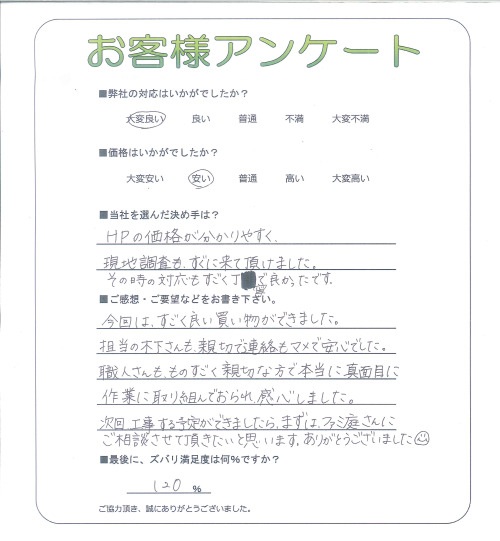 お客様アンケート
■弊社の対応はいかがでしたか？
大変良い 良い 普通 不満 大変不満
■価格はいかがでしたか？
大変安い 安い 普通 高い 大変高い
■当社を選んだ決め手は？
HPの価格が分かりやすく、
現地調査も、すぐに来て頂けました。
その時の対応もすごく丁寧で良かったです。
■ご感想・ご要望などをお書き下さい。
今回は、すごく良い買い物ができました。
担当の木下さんも、親切で連絡もマメで安心でした。
職人さんも、ものすごく親切な方で本当に真面目に
作業に取り組んでおられ、感心しました。
次回工事する予定ができましたら、まずは、ファミ庭さんに
ご相談させて頂きたいと思います。ありがとうございました
■最後に、ズバリ満足度は何%ですか？
120 %
ご協力頂き、誠にありがとうございました。